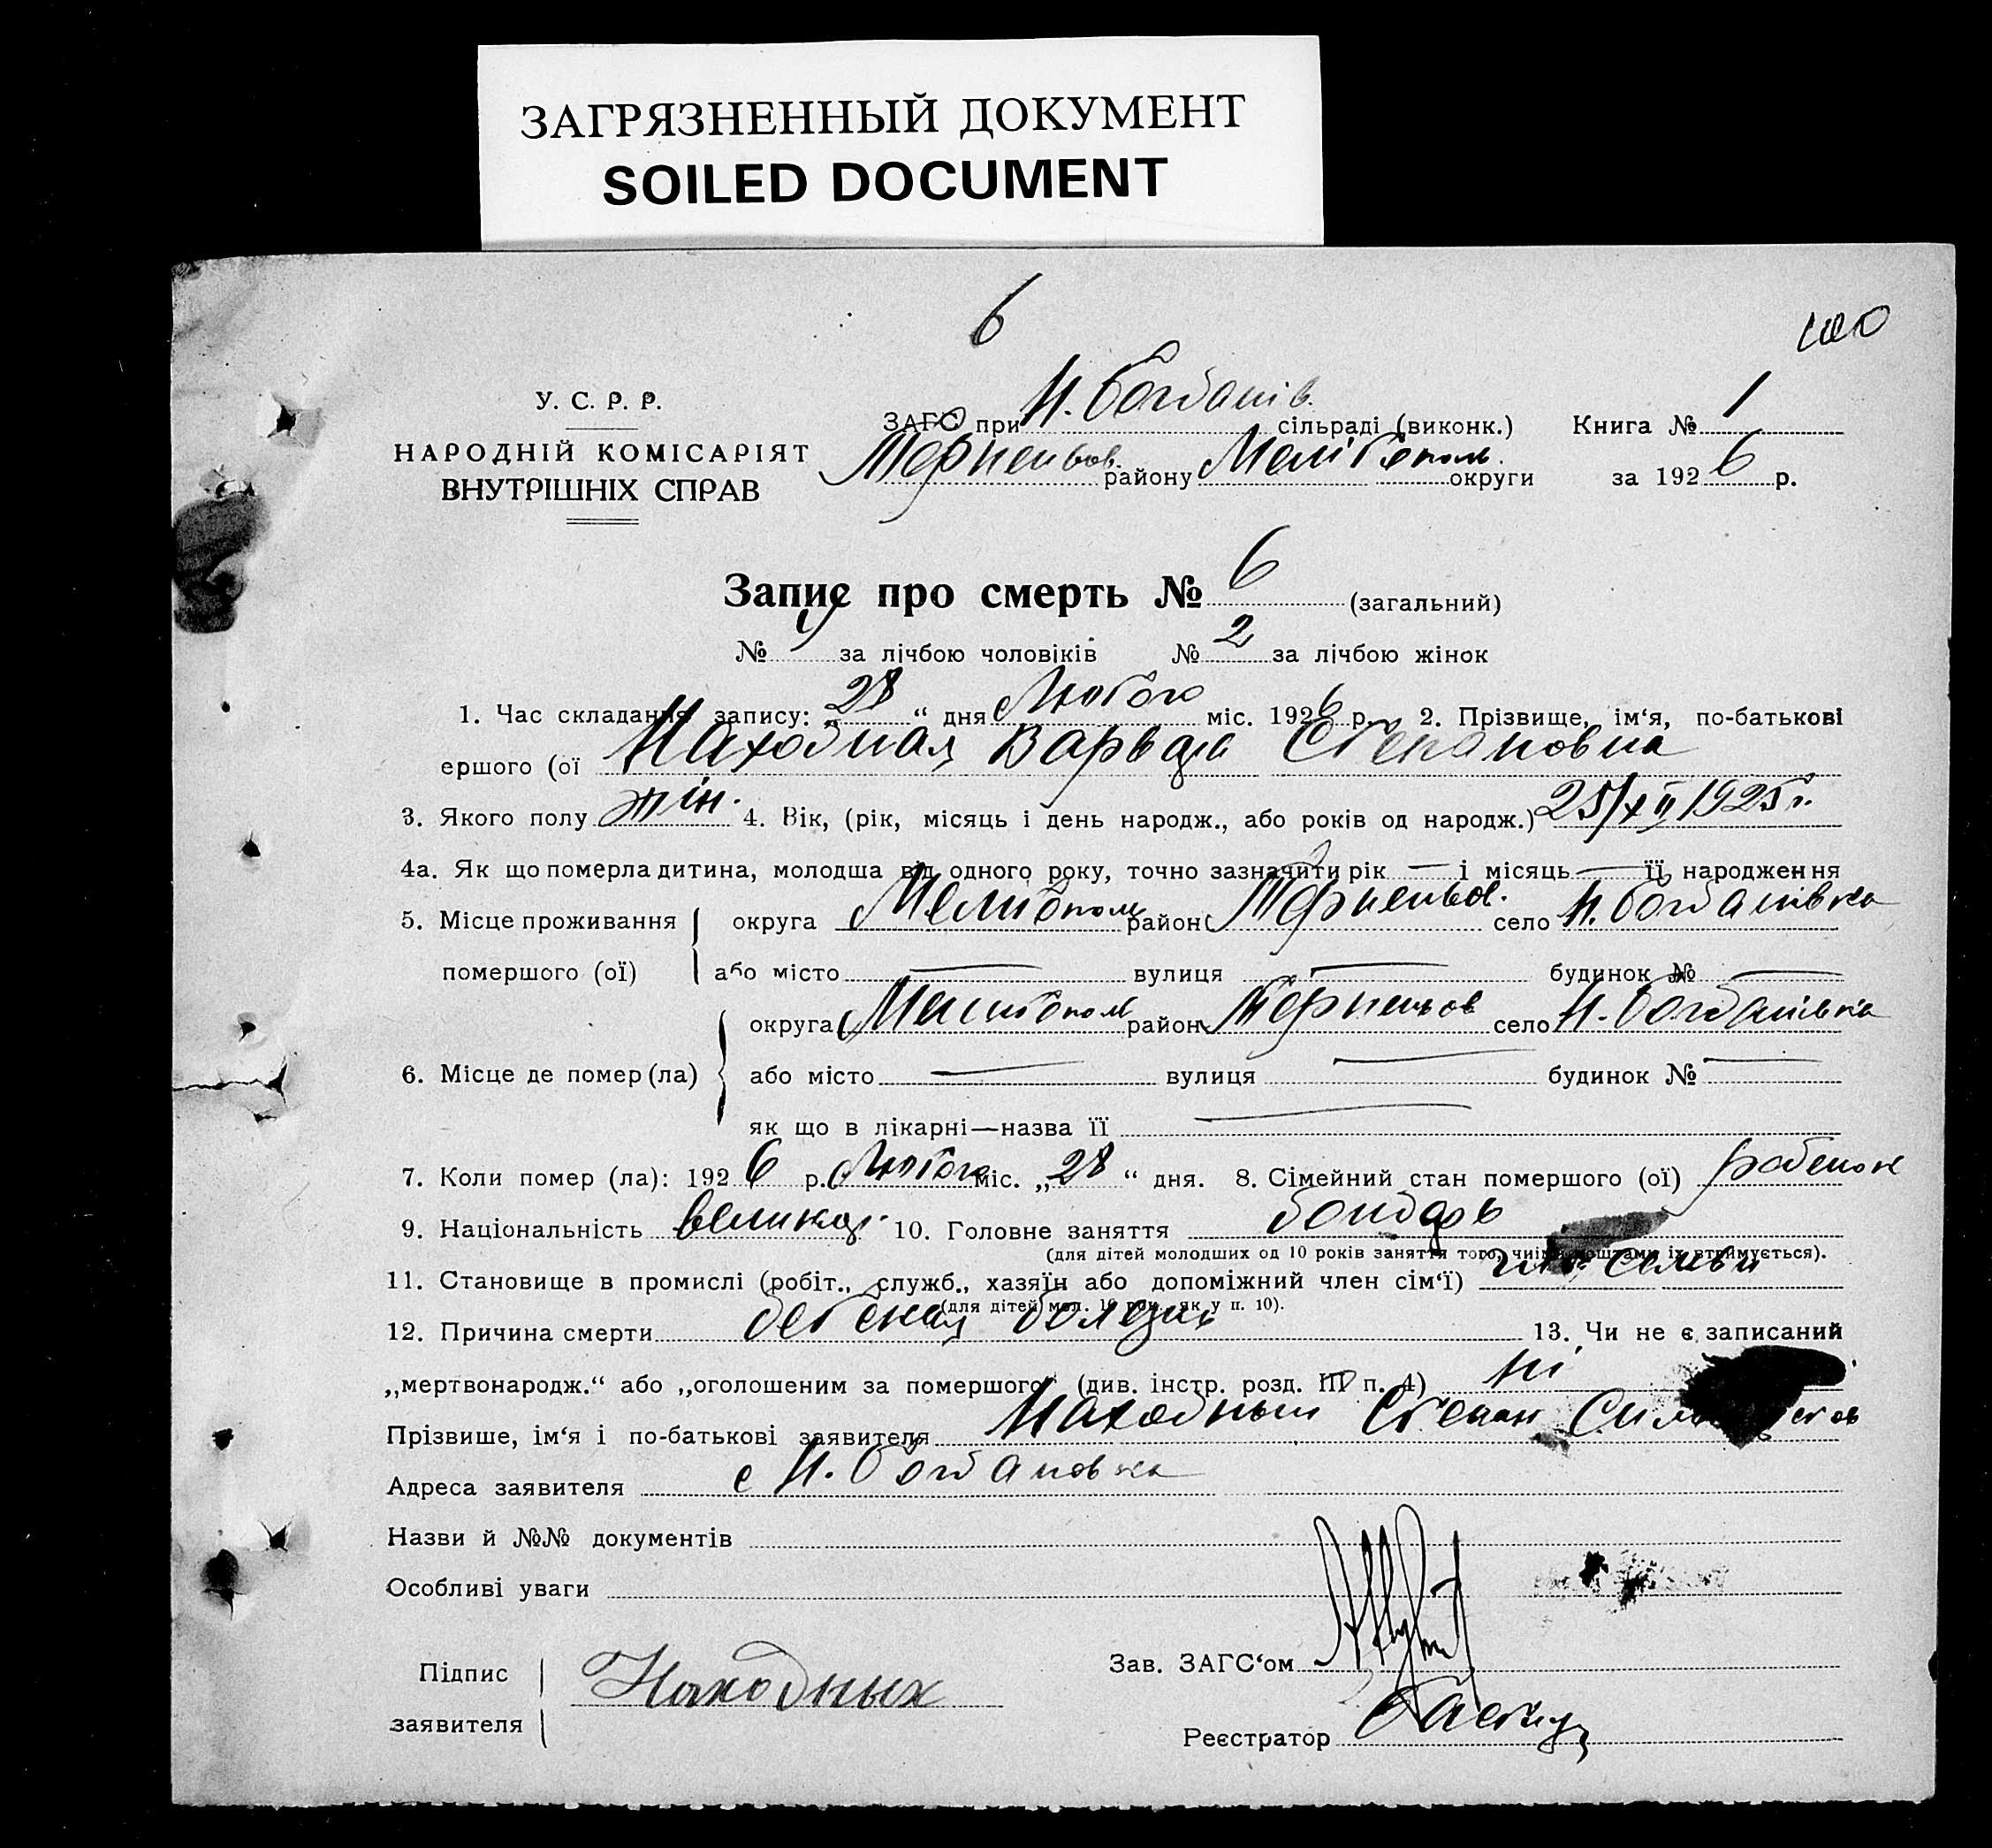 ЗАГРЯЗНЕННЫЙ ДОКУМЕНТ
SOILED DOCUMENT
6
100
У. С. Р. Р.
НАРОДНІЙ КОМІСАРІЯТ
ВНУТРІШНІХ СПРАВ
ЗАГС при Н. Богданів. сільраді (виконк.) Книга № 1
Терпеньов. району Мелітополь. округи за 1926 р.
Запис про смерть № 6 (загальний)
№ 4 за лічбою чоловіків № 2 за лічбою жінок
1. Час складання запису: „28“ дня Лютого міс. 1926 р. 2. Прізвище, ім‘я, по-батькові
ершого (ої Находная Варвара Степановна
3. Якого полу жін. 4. Вік, (рік, місяць і день народж., або років од народж.) 25/XII 1925 г.
4а. Як що померла дитина, молодша від одного року, точно зазначити рік — і місяць — її народження
5. Місце проживання округа Мелитопол район Терпеньов. село Н. Богданівка
помершого (ої) або місто — вулиця — будинок № —
округа Мелитопол район Терпеньов село Н. Богданівка
6. Місце де помер (ла) або місто — вулиця — будинок № —
як що в лікарні—назва її —
7. Коли помер (ла): 1926 р. Лютого міс. „28“ дня. 8. Сімейний стан помершого (ої) ребенок
9. Національність великор. 10. Головне заняття бондарь
(для дітей молодших од 10 років заняття того, чиїми коштами їх втримується).
11. Становище в промислі (робіт., служб., хазяїн або допоміжний член сім‘ї) семьи
(для дітей мол. 10 рок. як у п. 10).
12. Причина смерти детская болезнь 13. Чи не є записаний
„мертвонародж.“ або „оголошеним за помершого“ (див. інстр. розд. III п. 4) ні
Прізвише, ім‘я і по-батькові заявителя Находный Степан
Адреса заявителя с Н. Богдановка
Назви й №№ документів
Особливі уваги
Підпис заявителя Находных
Зав. ЗАГС‘ом
Реєстратор